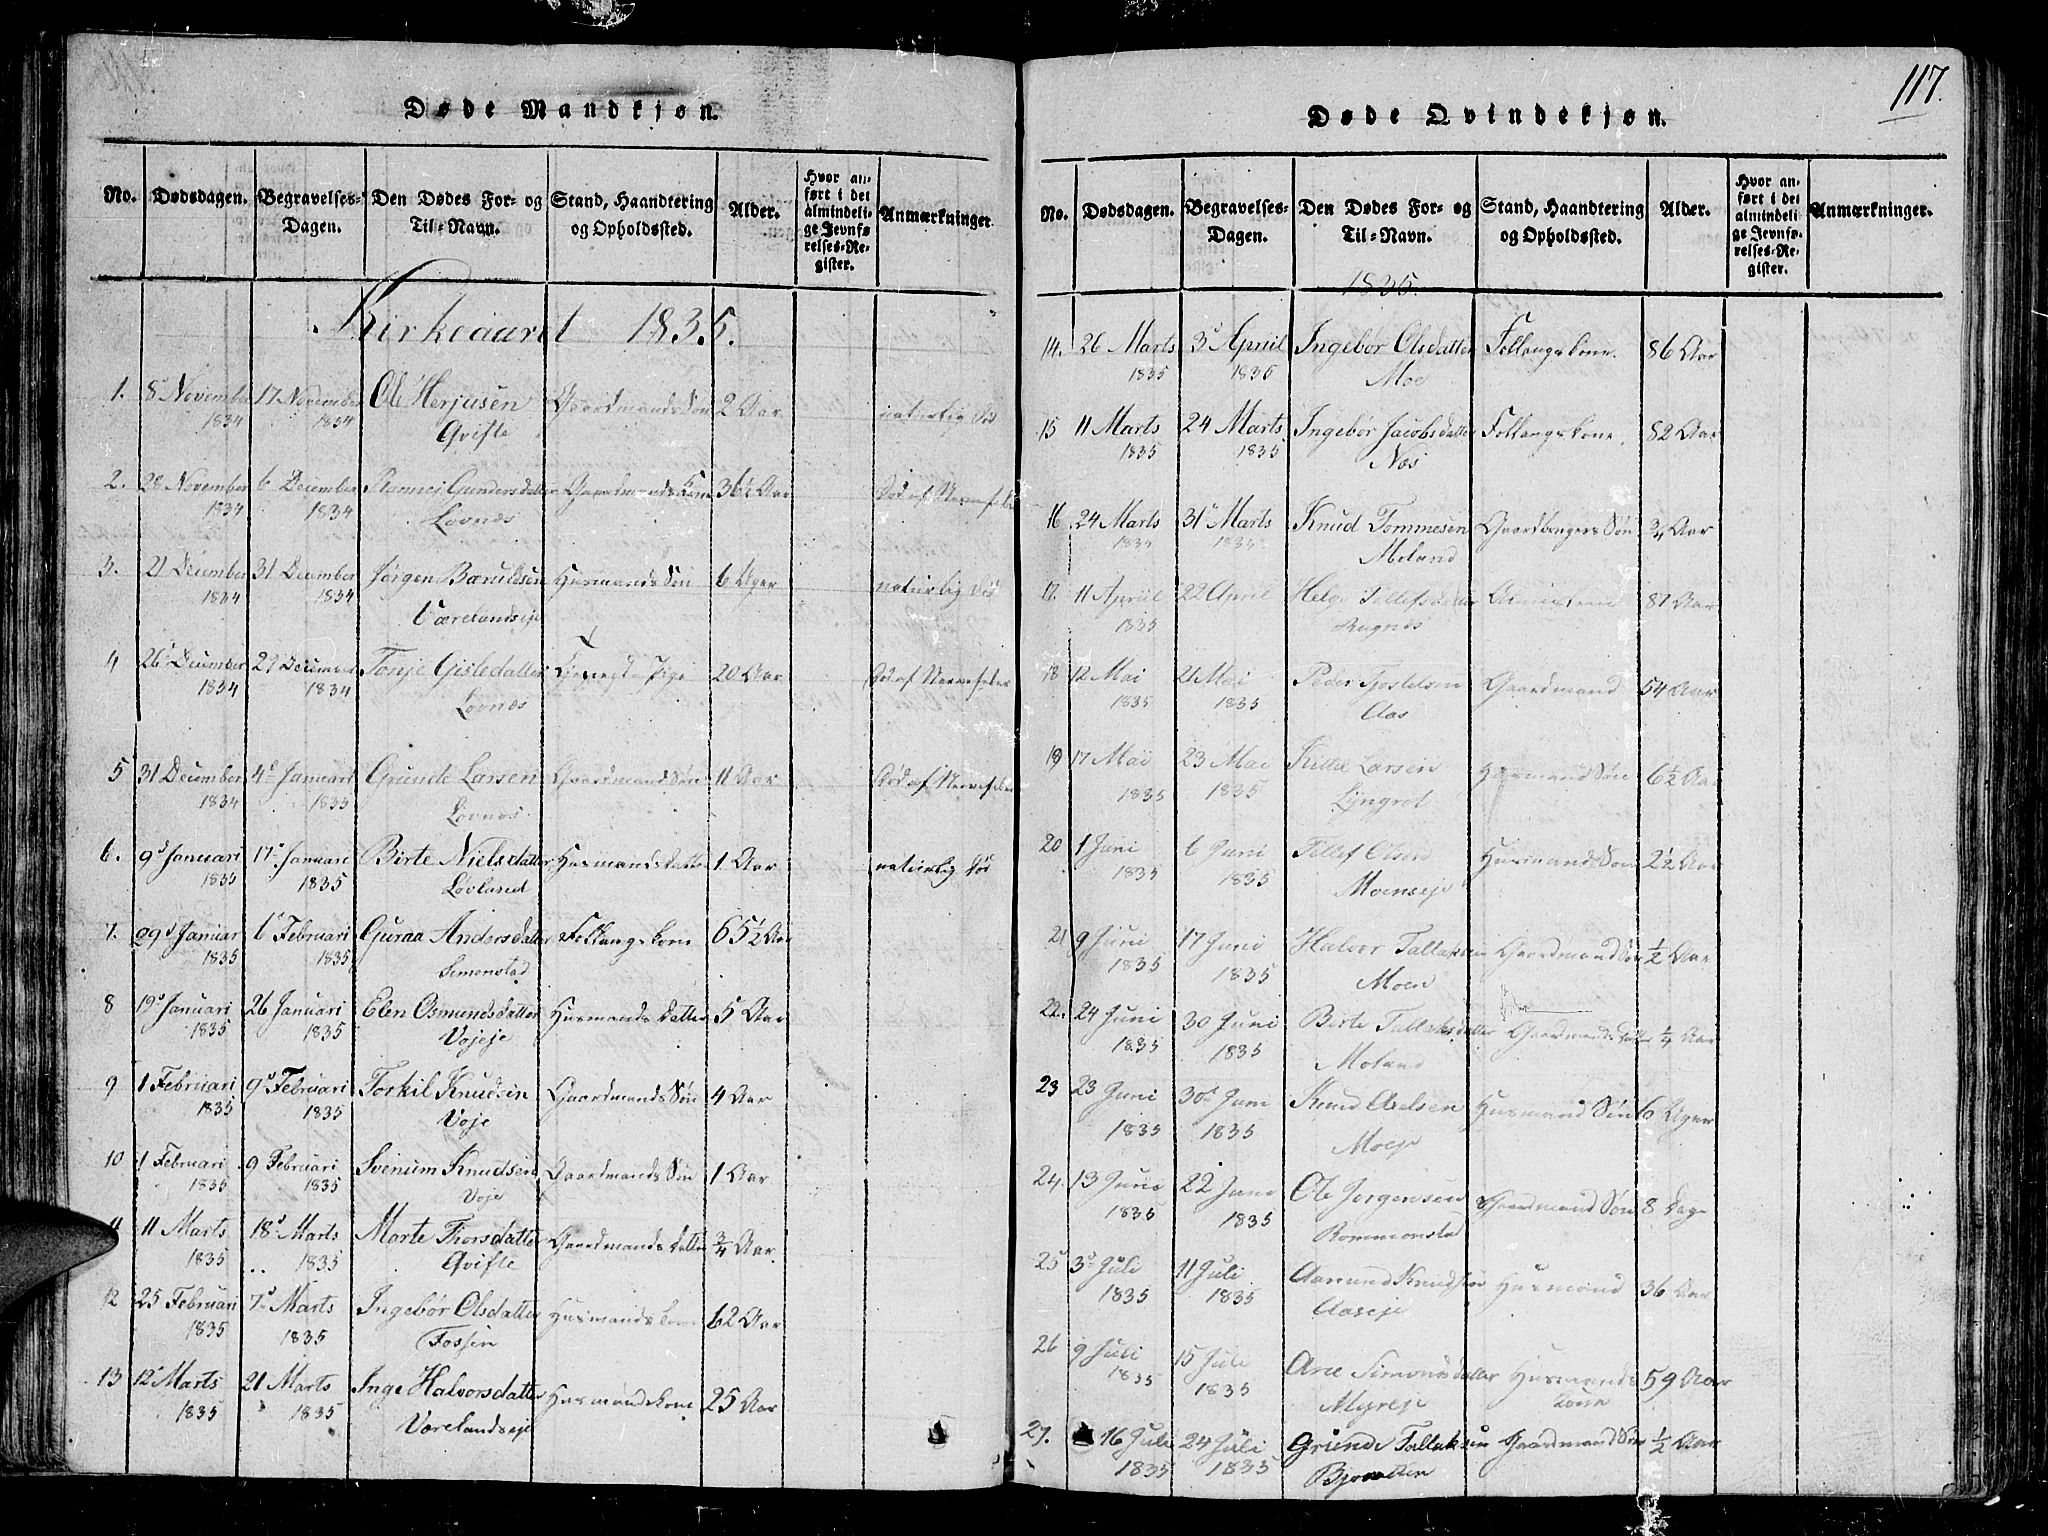 117.
Døde Mandkjøn.
No. Dødsdagen. Begravelses-Dagen. Den Dødes For- og Til-Navn. Stand, Haandtering og Opholdssted. Alder. Hvor anført i det almindelige Jevnførelses-Register. Anmærkninger.
Kirkeaaret 1835.
1. 8d November 17 November Ole Herjusen Gaardmands Søn 2 Aar naturlig Død
1834 1834 Qvifte
2. 28 November 6 December Gundersdatter Gaardmands Kone 36½ Aar Død af Nervefeber
1834 1834 Lovnes
3. 21 December 31 December Jørgen Børuldsen Husmands Søn 6 Uger naturlig Død
1834 1834 Værelandseje
4 26d December 29 December Tonje Gisledatter Pige 20 Aar Død af Nervefeber
1834 1834 Lovnes
5 31 December 4d Januari Gunde Larsen Gaardmand Søn 11 Aar Død af Nervefeber
1834 1835 Lovnes
6. 9d Januari 17d Januari Birte Nielsdatter Husmands Datter 1 Aar naturlig Død
1835 1835 Løvland
7. 29d Januar 6d Februari Guraa Andersdatter Follaugskone 65½ Aar
1835 1835 Simonstad
8 19d Januari 26 Januari Elen Osmundsdatter Husmands Datter 5 Aar
1835 1835 Vojeje
9 1 Februari 9d Februari Torkil Knudsen Gaardmands Søn 4 Aar
1835 1835 Voje
10 1 Februari 9 Februari Svenum Knudsen Gaardmands Søn 1 Aar
1835 1835 Voje
11 11 Marts 18d Marts Marte Thorsdatter Gaardmands Datter ¾ Aar
1835 1835 Qvifte
12 25 Februari 7d Marts Ingebør Olsdatter Husmands kone 62 Aar
1835 1835 Fossen
13 12d Marts 21 Marts Inge Halvorsdatter Husmandskone 25 Aar
1835 1835 Værelandseje
Døde Qvindekjøn.
No. Dødsdagen. Begravelses-Dagen. Den Dødes For- og Til-Navn. Stand, Haandtering og Opholdssted. Alder. Hvor anført i det almindelige Jevnførelses-Register. Anmærkninger.
1835.
14. 26 Marts 3d April Ingebør Olsdatter Follaugskone. 86 Aar
1835 1835 Moe
15 11 Marts 24 Marts Ingebør Jacobsdatter Follaugskone. 82 Aar
1835 1835 Næs
16 24 Marts 31d Marts Knud Tommesen Gaardbrugers Søn ¾ Aar
1835 1835 Moland
17. 11 April 22 April Helge Tellefsdatter 87 Aar
1835 Rugnes
18 12 Mai 21 Mai Peder Tjostelsen Gaardmand 54 Aar
1835 1835 Aas
19 17 Mai 23 Mai Kittel Larsen Husmand Søn 6½ Aar
1835 1835 Lyngrot
20 1 Juni 6 Juni Tellef Olsen Husmands Søn 2½ Aar
1835 1835 Moenseje
21 9 Juni 17 Juni Halvor Tallaksen Gaardmand Søn ½ Aar
1835 1835 Moen
22. 24 Juni 30 Juni Birte Tallaksdatter Gaardmands Datter ¼ Aar
1835 1835 Moland
23 23 Juni 30d Juni Knud Axelsen Husmand Søn 6 Uger
1835 1835 Moeje
24. 13 Juni 22 Juni Ole Jorgensen Gaardmand Søn 8 Dage
1835 1835 Rommonsta
25 3d Juli 11 Juli Aamund Knudsen Husmand 36 Aar
1835 1835 Aaseje
26 9 Juli 15 Juli Ane Simonsdatter Husmands 59 Aar
1835 1835 Myreje Kone
27. 16 Juli 24 Juli Gunde Tallaksen Gaardmand Søn ½ Aar
1835 1835